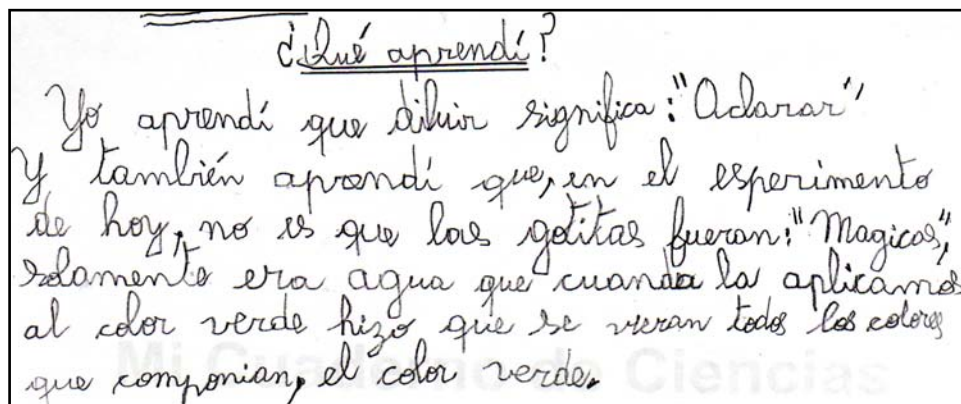 ¿Qué aprendí?
Yo aprendí que diluir significa: "Aclarar"
Y también aprendí que, en el esperimento
de hoy, no es que las gotitas fueran: "Magicas",
solamente era agua que cuando la aplicamos
al color verde hizo que se vieran todos los colores
que componian, el color verde.
Mi Cuaderno de Ciencias